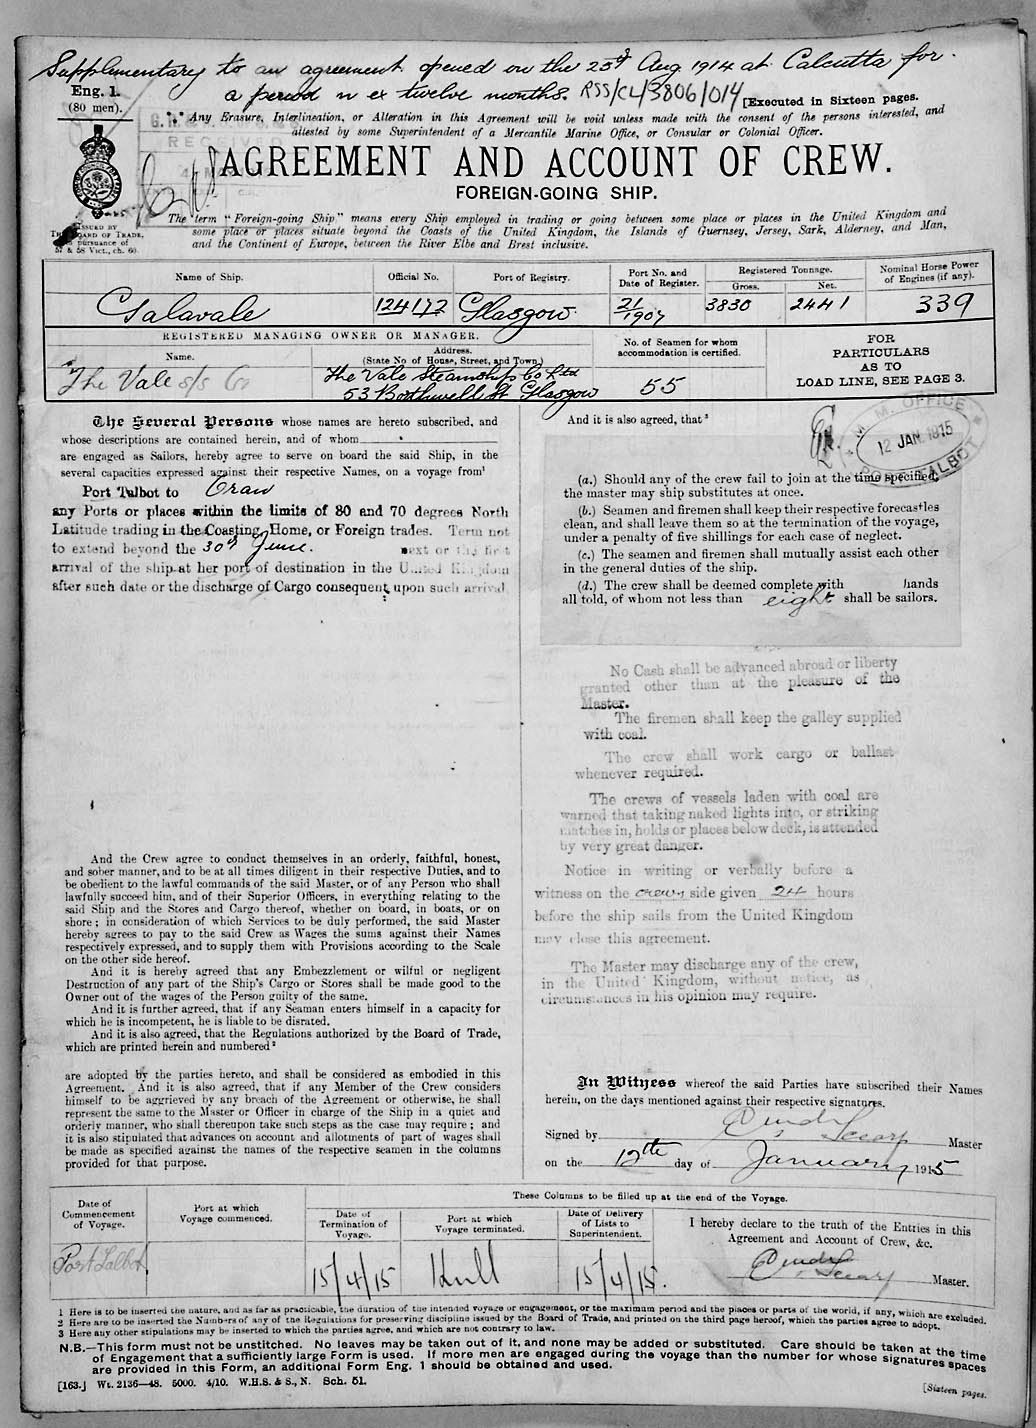 Supplementary to an agreement opened on the 25th Aug 1914 at Calcutta for
a period n ex twelve months. RSS/CL/3806/014
Eng. 1.
(80 men).
[Executed in Sixteen pages.
Any Erasure, Interlineation, or Alteration in this Agreement will be void unless made with the consent of the persons interested, and
attested by some Superintendent of a Mercantile Marine Office, or Consular or Colonial Officer.
AGREEMENT AND ACCOUNT OF CREW.
FOREIGN-GOING SHIP.
ISSUED BY
THE BOARD OF TRADE,
in pursuance of
57 & 58 Vict., ch. 60.
The term "Foreign-going Ship" means every Ship employed in trading or going between some place or places in the United Kingdom and
some place or places situate beyond the Coasts of the United Kingdom, the Islands of Guernsey, Jersey, Sark, Alderney, and Man,
and the Continent of Europe, between the River Elbe and Brest inclusive.
Name of Ship. Official No. Port of Registry. Port No. and Date of Register. Registered Tonnage. Gross. Net. Nominal Horse Power of Engines (if any).
Galavale 124142 Glasgow 21/1907 3830 2441 339
REGISTERED MANAGING OWNER OR MANAGER.
Name. Address. (State No of House, Street, and Town.) No. of Seamen for whom accommodation is certified.
The Vale s/s Co The Vale Steamship Co Ltd
53 Bothwell St Glasgow 55
FOR
PARTICULARS
AS TO
LOAD LINE, SEE PAGE 3.
The Several Persons whose names are hereto subscribed, and
whose descriptions are contained herein, and of whom
are engaged as Sailors, hereby agree to serve on board the said Ship, in the
several capacities expressed against their respective Names, on a voyage from¹
Port Talbot to Oran
any Ports or places within the limits of 80 and 70 degrees North
Latitude trading in the Coasting, Home, or Foreign trades. Term not
to extend beyond the 30th June. next or the first
arrival of the ship at her port of destination in the United Kingdom
after such date or the discharge of Cargo consequent upon such arrival
And the Crew agree to conduct themselves in an orderly, faithful, honest,
and sober manner, and to be at all times diligent in their respective Duties, and to
be obedient to the lawful commands of the said Master, or of any Person who shall
lawfully succeed him, and of their Superior Officers, in everything relating to the
said Ship and the Stores and Cargo thereof, whether on board, in boats, or on
shore; in consideration of which Services to be duly performed, the said Master
hereby agrees to pay to the said Crew as Wages the sums against their Names
respectively expressed, and to supply them with Provisions according to the Scale
on the other side hereof.
And it is hereby agreed that any Embezzlement or wilful or negligent
Destruction of any part of the Ship's Cargo or Stores shall be made good to the
Owner out of the wages of the Person guilty of the same.
And it is further agreed, that if any Seaman enters himself in a capacity for
which he is incompetent, he is liable to be disrated.
And it is also agreed, that the Regulations authorized by the Board of Trade,
which are printed herein and numbered²
are adopted by the parties hereto, and shall be considered as embodied in this
Agreement. And it is also agreed, that if any Member of the Crew considers
himself to be aggrieved by any breach of the Agreement or otherwise, he shall
represent the same to the Master or Officer in charge of the Ship in a quiet and
orderly manner, who shall thereupon take such steps as the case may require; and
it is also stipulated that advances on account and allotments of part of wages shall
be made as specified against the names of the respective seamen in the columns
provided for that purpose.
And it is also agreed, that³
M. M. OFFICE
12 JAN 1915
PORT TALBOT
(a.) Should any of the crew fail to join at the time specified,
the master may ship substitutes at once.
(b.) Seamen and firemen shall keep their respective forecastles
clean, and shall leave them so at the termination of the voyage,
under a penalty of five shillings for each case of neglect.
(c.) The seamen and firemen shall mutually assist each other
in the general duties of the ship.
(d.) The crew shall be deemed complete with hands
all told, of whom not less than eight shall be sailors.
No Cash shall be advanced abroad or liberty
granted other than at the pleasure of the
Master.
The firemen shall keep the galley supplied
with coal.
The crew shall work cargo or ballast
whenever required.
The crews of vessels laden with coal are
warned that taking naked lights into, or striking
matches in, holds or places below deck, is attended
by very great danger.
Notice in writing or verbally before a
witness on the crews side given 24 hours
before the ship sails from the United Kingdom
may close this agreement.
The Master may discharge any of the crew,
in the United Kingdom, without notice, as
circumstances in his opinion may require.
In Witness whereof the said Parties have subscribed their Names
herein, on the days mentioned against their respective signatures.
Signed by Master
on the 12th day of January 1915
These Columns to be filled up at the end of the Voyage.
Date of Commencement of Voyage. Port at which Voyage commenced. Date of Termination of Voyage. Port at which Voyage terminated. Date of Delivery of Lists to Superintendent.
I hereby declare to the truth of the Entries in this
Agreement and Account of Crew, &c.
Port Talbot, 15/4/15 Hull 15/4/15. Master.
1 Here is to be inserted the nature, and as far as practicable, the duration of the intended voyage or engagement, or the maximum period and the places or parts of the world, if any, which are excluded.
2 Here are to be inserted the Numbers of any of the Regulations for preserving discipline issued by the Board of Trade, and printed on the third page hereof, which the parties agree to adopt.
3 Here any other stipulations may be inserted to which the parties agree, and which are not contrary to law.
N.B.—This form must not be unstitched. No leaves may be taken out of it, and none may be added or substituted. Care should be taken at the time
of Engagement that a sufficiently large Form is used. If more men are engaged during the voyage than the number for whose signatures spaces
are provided in this Form, an additional Form Eng. 1 should be obtained and used.
[163.] Wt. 2136—48. 5000. 4/10. W.H.S. & S., N. Sch. 51.
[Sixteen pages.